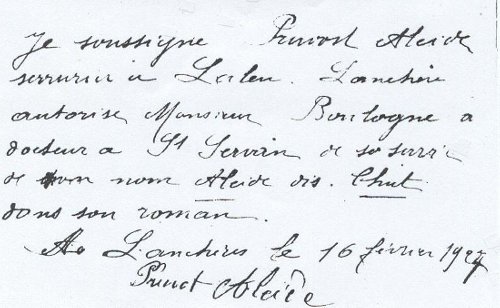 Je soussigné Pruvost Alcide
serrurier à Laleu. Lanchère
autorise Monsieur Boulogne a
docteur a St Servan de se servir
de mon nom Alcide dis. Chut
dans son roman.
A Lanchères le 16 février 1927
Pruvot Alcide